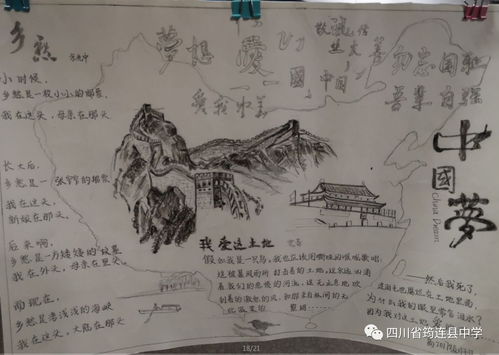 乡愁
余光中
小时候,
乡愁是一枚小小的邮票
我在这头,母亲在那头
长大后,
乡愁是一张窄窄的船票
我在这头,
新娘在那头。
后来啊,
乡愁是一方矮矮的坟墓
我在外头,母亲在里头
而现在,
乡愁是一湾浅浅的海峡
我在这头,大陆在那头
夢想
愛
國
中国
勿忘国耻
吾辈自强
中國夢
China Dream
我爱这土地
艾青
假如我是一只鸟,我也应该用嘶哑的喉咙歌唱:
这被暴风雨所打击着的土地,这永远汹涌
着我们的悲愤的河流,这无止息地吹
刮着的激怒的风,和那来自林间的无
比温柔的黎明……
——然后我死了,
连羽毛也腐烂在土地里面
为什么我的眼里常含泪水?
因为我对这土地爱
18/21
四川省筠连县中学